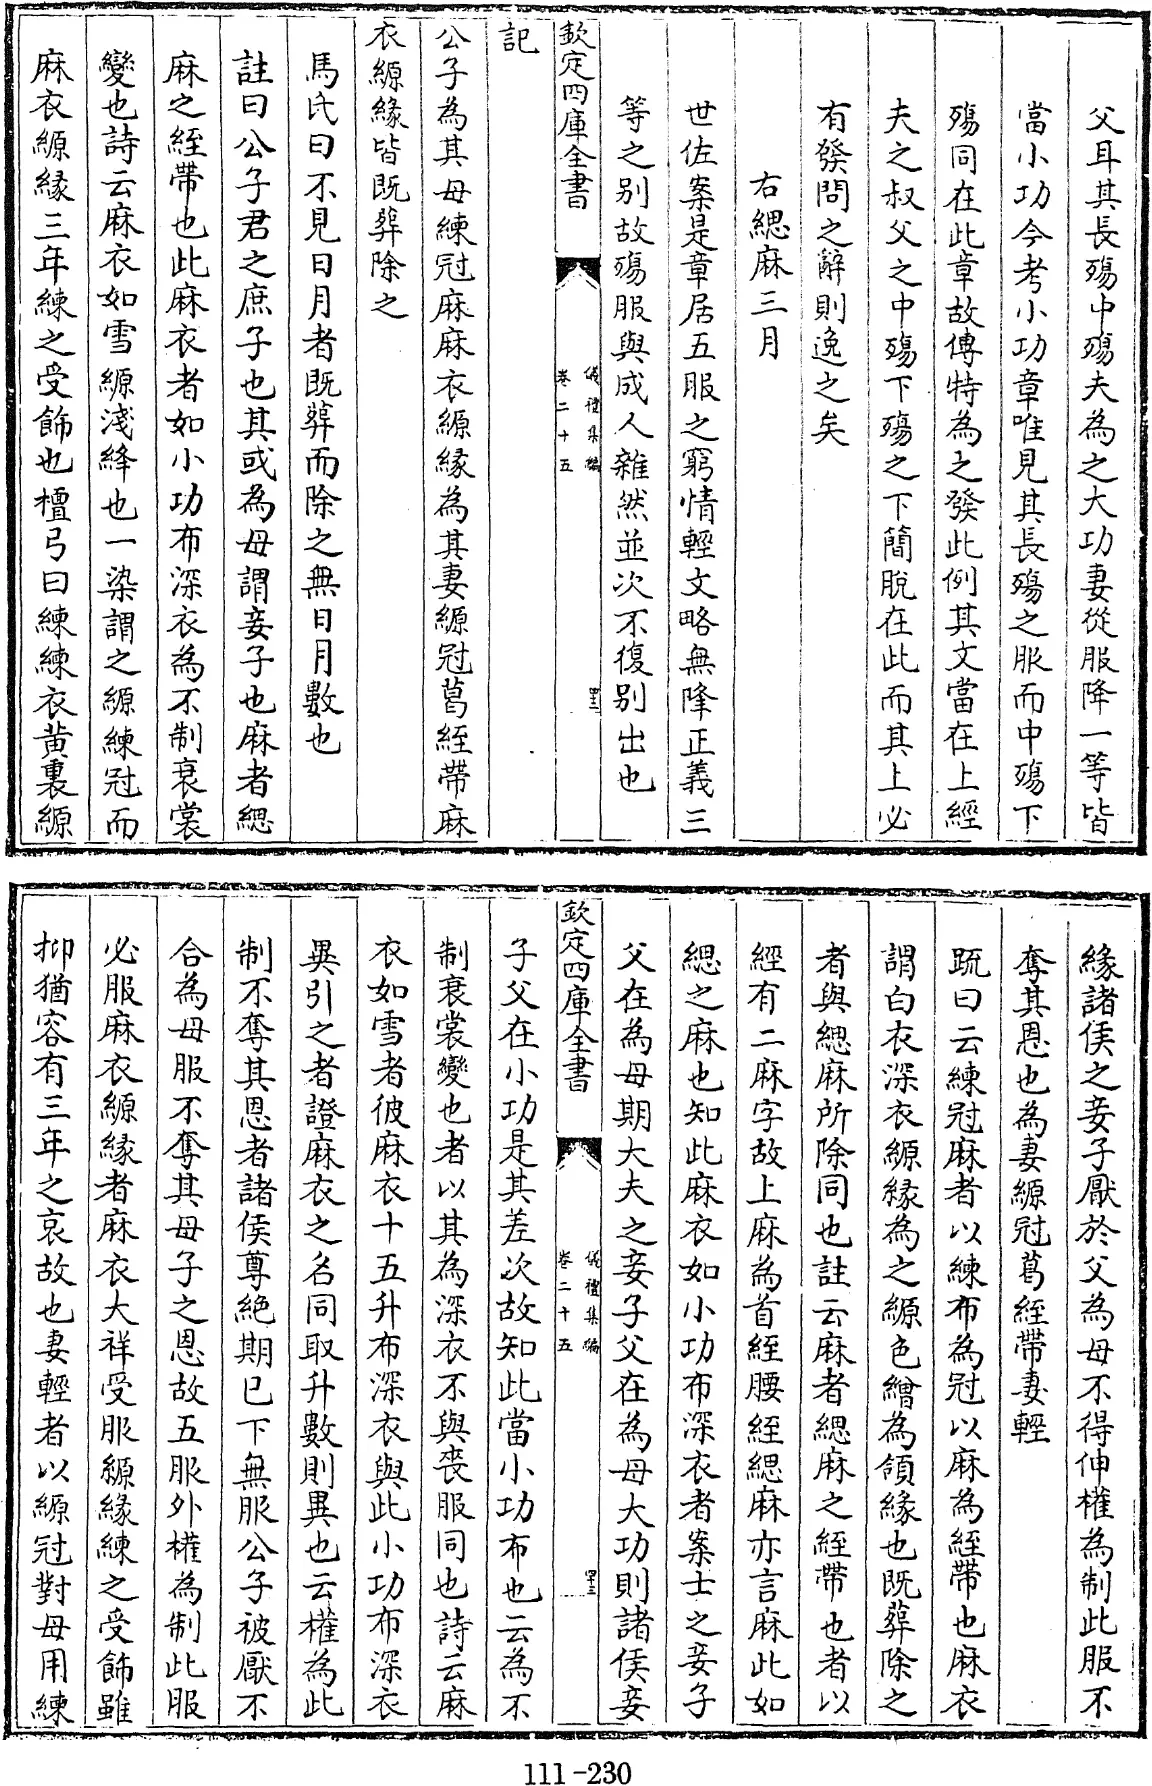 父耳其長殤中殤夫為之大功妻從服降一等皆
當小功今考小功章唯見其長殤之服而中殤下
殤同在此章故傳特為之發此例其文當在上經
夫之叔父之中殤下殤之下簡脫在此而其上必
有發問之辭則逸之矣
右緦麻三月
世佐案是章居五服之窮情輕文略無降正義三
等之別故殤服與成人雜然並次不復別出也
欽定四庫全書
儀禮集編
卷二十五
記
公子為其母練冠麻麻衣縓緣為其妻縓冠葛絰帶麻
衣縓緣皆既葬除之
馬氏曰不見日月者既葬而除之無日月數也
註曰公子君之庶子也其或為母謂妾子也麻者緦
麻之絰帶也此麻衣者如小功布深衣為不制衰裳
變也詩云麻衣如雪縓淺絳也一染謂之縓練冠而
麻衣縓緣三年練之受飾也檀弓曰練練衣黃裏縓
緣諸侯之妾子厭於父為母不得伸權為制此服不
奪其恩也為妻縓冠葛絰帶妻輕
疏曰云練冠麻者以練布為冠以麻為絰帶也麻衣
謂白衣深衣縓緣為之縓色繒為領緣也既葬除之
者與緦麻所除同也註云麻者緦麻之絰帶也者以
經有二麻字故上麻為首絰腰絰緦麻亦言麻此如
緦之麻也知此麻衣如小功布深衣者案士之妾子
父在為母期大夫之妾子父在為母大功則諸侯妾
欽定四庫全書
儀禮集編
卷二十五
四十三
子父在小功是其差次故知此當小功布也云為不
制衰裳變也者以其為深衣不與喪服同也詩云麻
衣如雪者彼麻衣十五升布深衣與此小功布深衣
異引之者證麻衣之名同取升數則異也云權為此
制不奪其恩者諸侯尊絕期已下無服公子被厭不
合為母服不奪其母子之恩故五服外權為制此服
必服麻衣縓緣者麻衣大祥受服縓緣練之受飾雖
抑猶容有三年之哀故也妻輕者以縓冠對母用練
111-230